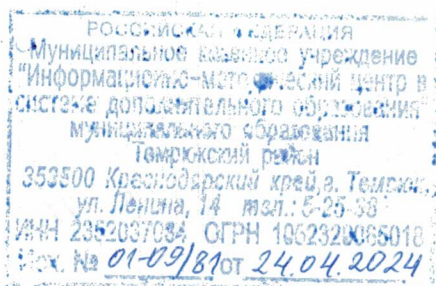 РОССИЙСКАЯ ФЕДЕРАЦИЯ
Муниципальное казенное учреждение
"Информационно-методический центр в
системе дополнительного образования"
муниципального образования
Темрюкский район
353500 Краснодарский край, г. Темрюк,
ул. Ленина, 14 тел.: 5-25-38
ИНН ОГРН
Исх. № 01-09/81 от 24.04.2024